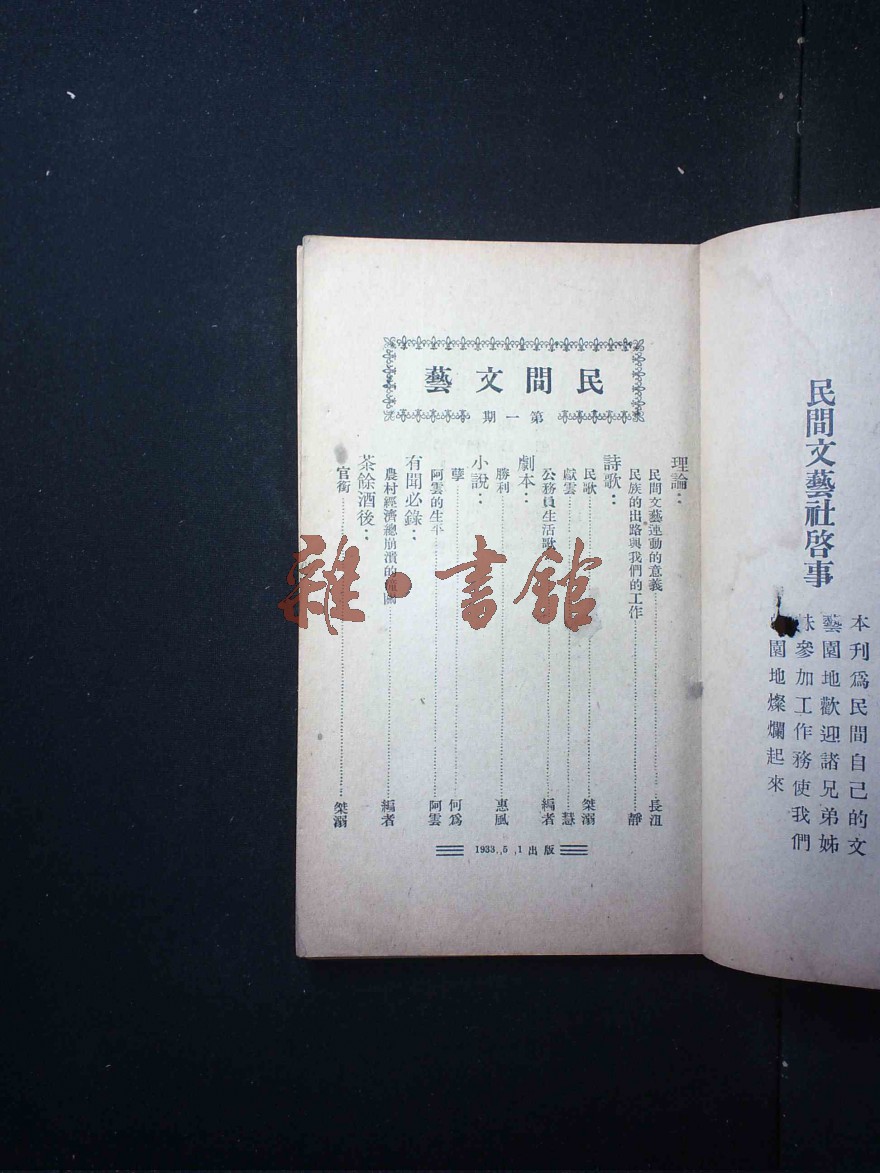 民間文藝社啓事
本刊爲民間自己的文
藝園地歡迎諸兄弟姊
妹參加工作務使我們
園地燦爛起來
民間文藝
第一期
理論：
民間文藝運動的意義 長沮
民族的出路與我們的工作 靜
詩歌：
民歌 桀溺
獻雲 慧
公務員生活歌 編者
劇本：
勝利 惠風
小說：
孽 何爲
阿雲的生平 阿雲
有聞必錄：
農村經濟總崩潰的 編者
茶餘酒後：
官銜 桀溺
1933.,5 ,1 出版
雜·書館